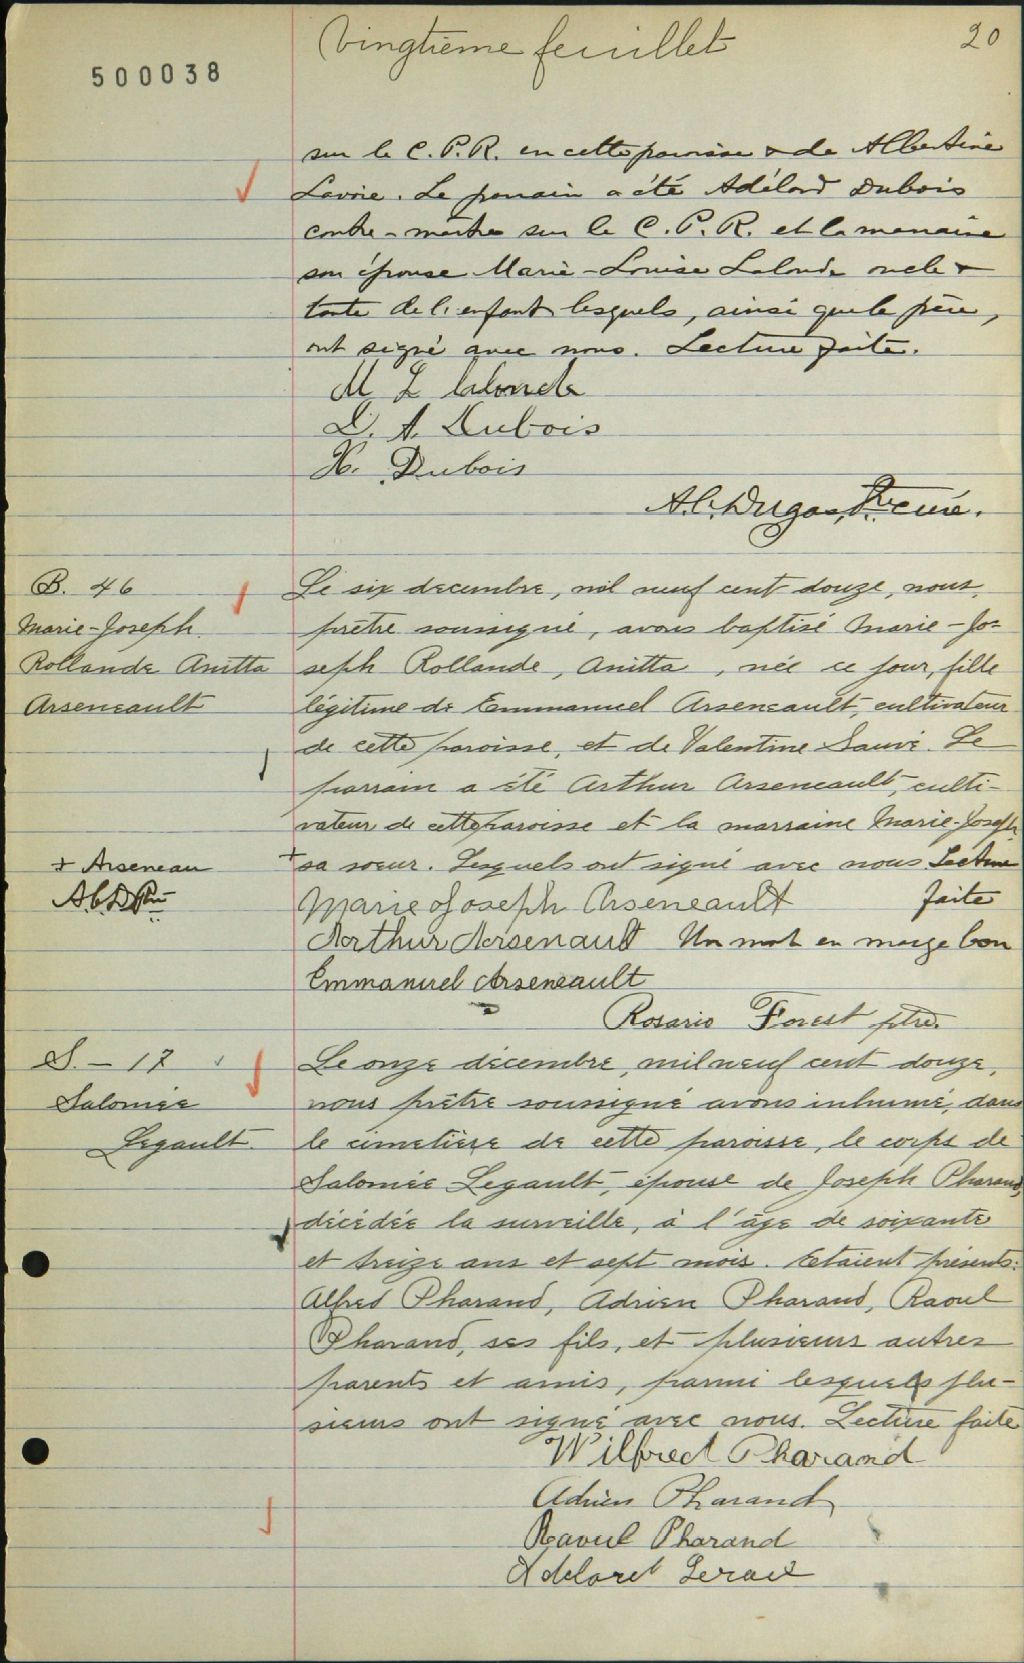 Vingtième feuillet
20
500038
sur le C. P. R. en cette paroisse & de Albertine
Lavoie. Le parrain a été Adélard Dubois
contre-maître sur le C. P. R. et la marraine
son épouse Marie-Louise Lalonde oncle &
tante de l'enfant lesquels, ainsi que le père,
ont signé avec nous. Lecture faite.
M L Lalonde
D. A. Dubois
H. Dubois
A. C. Dugas, Ptre curé.
B. 46
Marie-Joseph
Rollande Anitta
Arseneault
Le six decembre, mil neuf cent douze, nous,
prêtre soussigné, avons baptisé Marie-Jo-
seph Rollande, Anitta, née ce jour, fille
légitime de Emmanuel Arseneault, cultivateur
de cette paroisse, et de Valentine Sauvé. Le
parrain a été Arthur Arseneault, culti-
vateur de cette paroisse et la marraine Marie-Joseph
+ sa soeur. Lesquels ont signé avec nous Lecture
faite
+ Arseneau
A.C.D. Ptre
Marie Joseph Arseneault
Arthur Arsenault Un mot en marge bon
Emmanuel Arseneault
Rosario Forest ptre.
S. - 17
Salomée
Legault
Le onze décembre, mil neuf cent douze,
nous prêtre soussigné avons inhumé, dans
le cimetière de cette paroisse, le corps de
Salomée Legault, épouse de Joseph Pharand,
décédée la surveille, à l'âge de soixante
et treize ans et sept mois. Etaient présents:
Alfred Pharand, Adrien Pharand, Raoul
Pharand, ses fils, et plusieurs autres
parents et amis, parmi lesquels plu-
sieurs ont signé avec nous. Lecture faite
Wilfred Pharand
Adrien Pharand
Raoul Pharand
Adelard